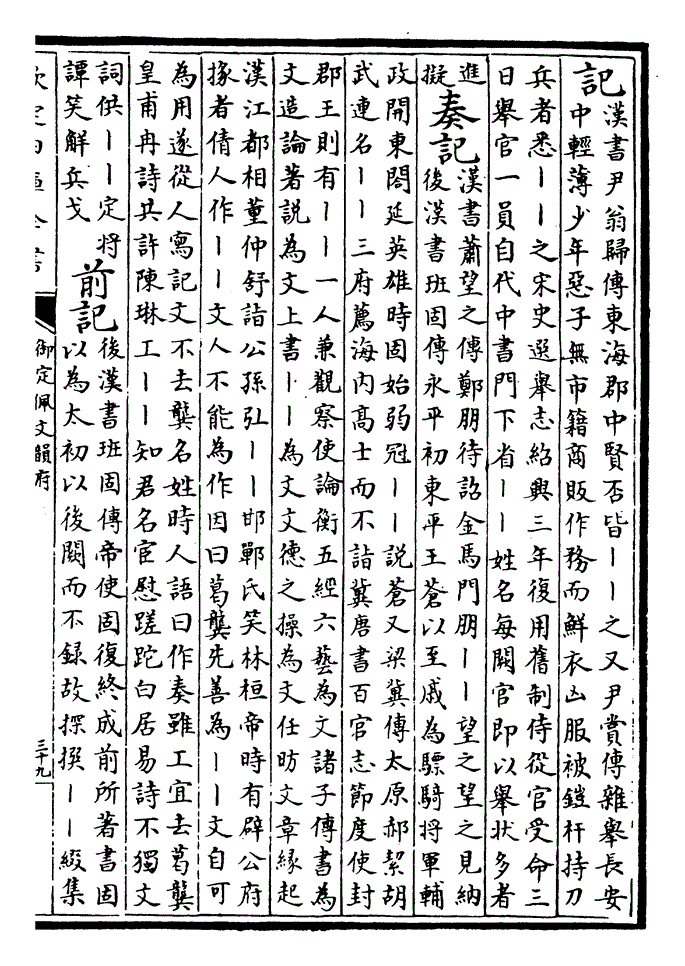 記 漢書尹翁歸傳東海郡中賢否皆丨丨之又尹賞傳雜舉長安
中輕薄少年惡子無市籍商販作務而鮮衣凶服被鎧杆持刀
兵者悉丨丨之宋史選舉志紹興三年復用舊制侍從官受命三
日舉官一員自代中書門下省丨丨姓名每闕官即以舉狀多者
進
擬
奏記 漢書蕭望之傳鄭朋待詔金馬門朋丨丨望之望之見納
後漢書班固傳永平初東平王蒼以至戚為驃騎將軍輔
政開東閤延英雄時固始弱冠丨丨說蒼又梁冀傳太原郝絜胡
武連名丨丨三府薦海內高士而不詣冀唐書百官志節度使封
郡王則有丨丨一人兼觀察使論衡五經六藝為文諸子傳書為
文造論著說為文上書丨丨為文文德之操為文任昉文章緣起
漢江都相董仲舒詣公孫弘丨丨邯鄲氏笑林桓帝時有辟公府
掾者倩人作丨丨文人不能為作因曰葛龔先善為丨丨文自可
為用遂從人寫記文不去龔名姓時人語曰作奏雖工宜去葛龔
皇甫冉詩共許陳琳工丨丨知君名宦慰蹉跎白居易詩不獨文
詞供丨丨定將
譚笑解兵戈
前記 後漢書班固傳帝使固復終成前所著書固
以為太初以後闕而不錄故探撰丨丨綴集
欽定四庫全書
御定佩文韻府
三十九